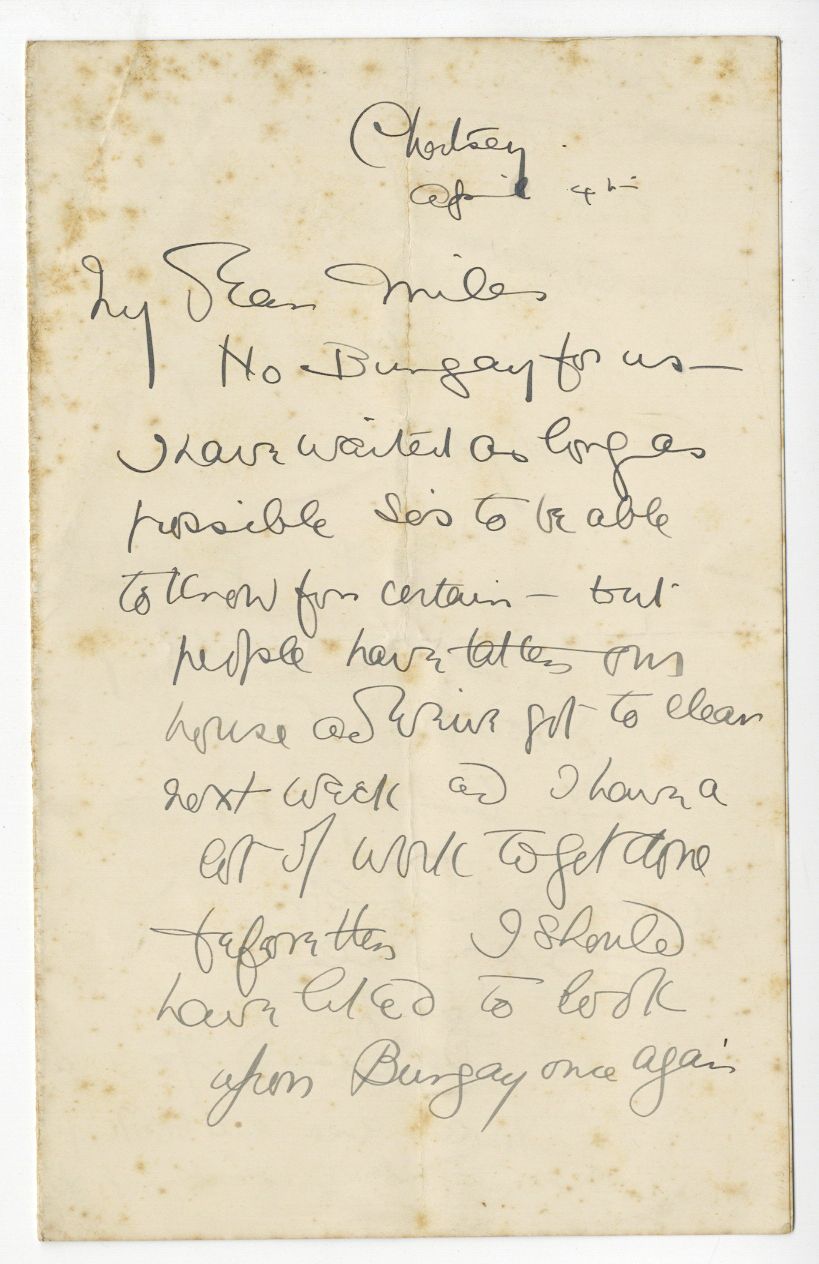 Cholsey.
April 4th
My Dear Miles
No Bungay for us—
I have waited as long as
possible so's to be able
to know for certain — but
people have taken our
house and we've got to clear
next week and I have a
lot of work to get done
before then I should
have liked to look
upon Bungay once again